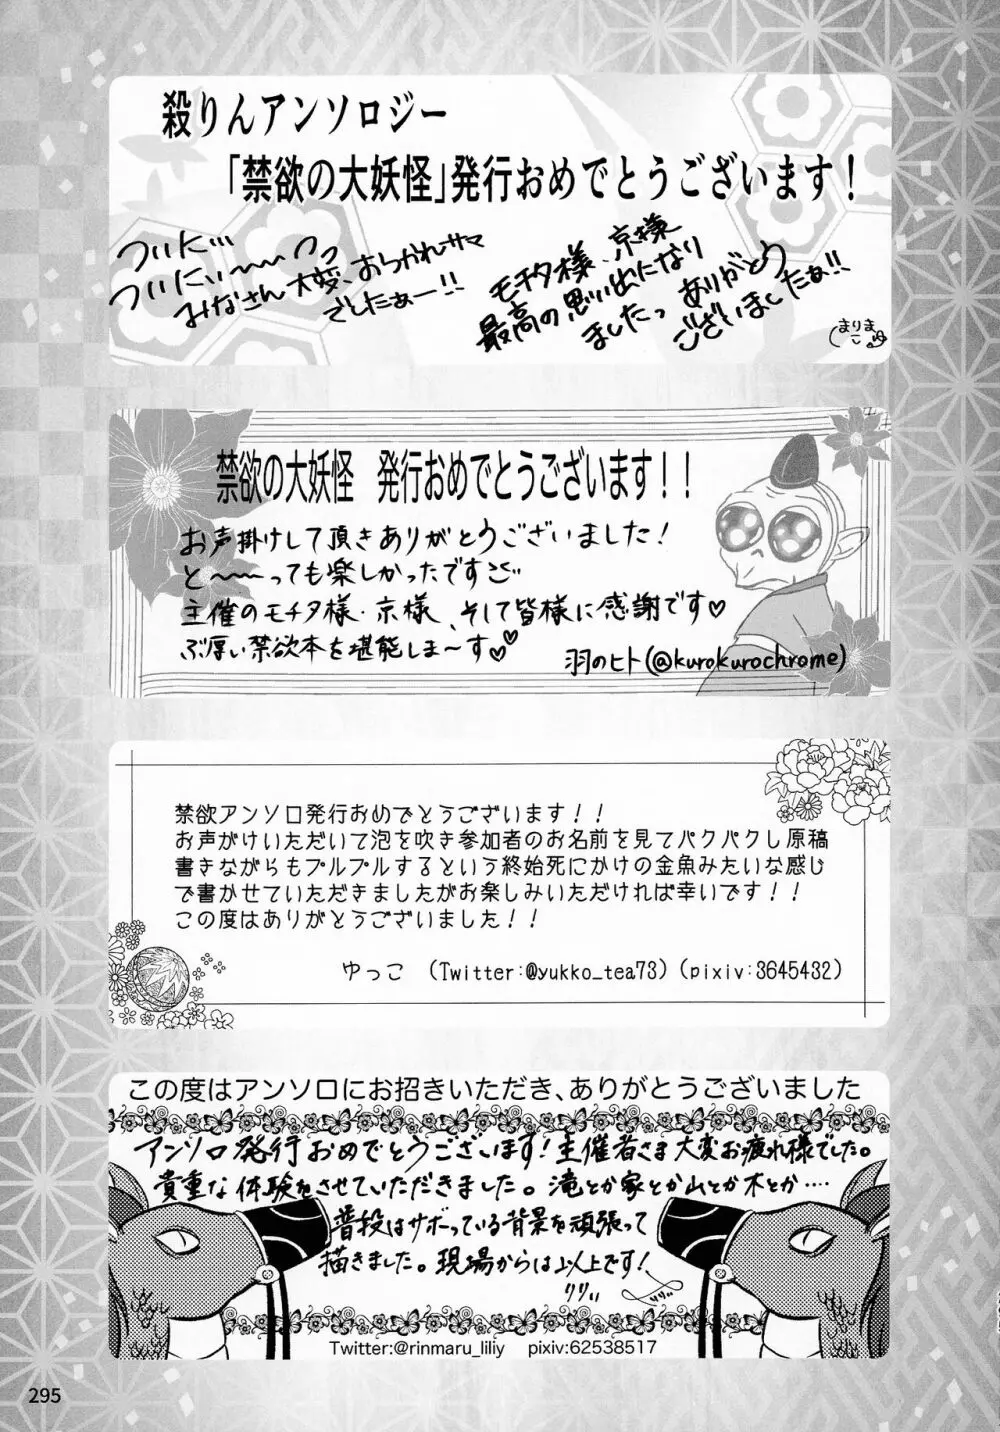 殺りんアンソロジー
「禁欲の大妖怪」発行おめでとうございます！
ついに…
ついにぃ〜〜っっ
みなさん大変、おつかれサマ
でしたぁー!!
モチタ様、京様
最高の思い出になり
ましたっ ありがとう
ございましたぁ!!
まりま
禁欲の大妖怪 発行おめでとうございます！！
お声掛けして頂きありがとうございました！
と〜〜っっても楽しかったです
主催のモチタ様・京様、そして皆様に感謝です♡
ぶ厚い禁欲本を堪能しま〜す♡♡
羽のヒト(@kurokurochrome)
禁欲アンソロ発行おめでとうございます！！
お声がけいただいて泡を吹き参加者のお名前を見てパクパクし原稿
書きながらもプルプルするという終始死にかけの金魚みたいな感じ
で書かせていただきましたがお楽しみいただければ幸いです！！
この度はありがとうございました！！
ゆっこ (Twitter:@yukko_tea73)(pixiv:3645432)
この度はアンソロにお招きいただき、ありがとうございました
アンソロ発行おめでとうございます！主催者さま大変お疲れ様でした。
貴重な体験をさせていただきました。滝とか家とか山とか木とか‥‥
普段はサボっている背景を頑張って
描きました。現場からは以上です！
リリィ
Twitter:@rinmaru_liliy pixiv:62538517
295